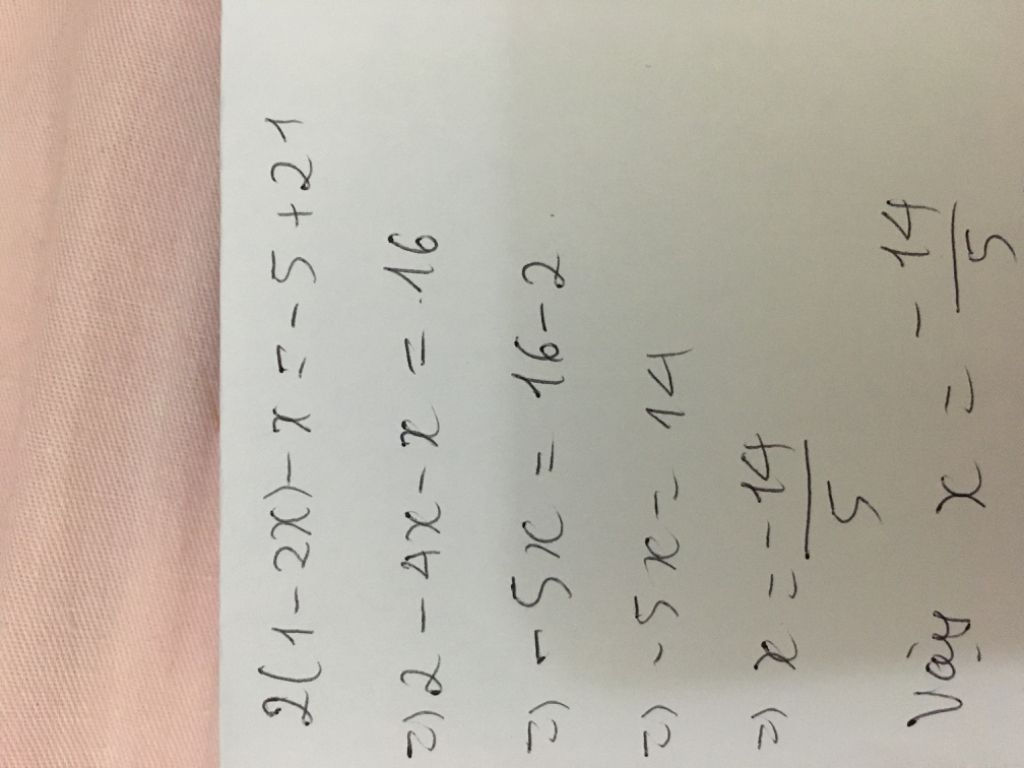 2(1-2x)-x=-5+21
=) 2-4x-x=16
=) -5x=16-2
=) -5x=14
=) x=-14/5
Vậy x=-14/5